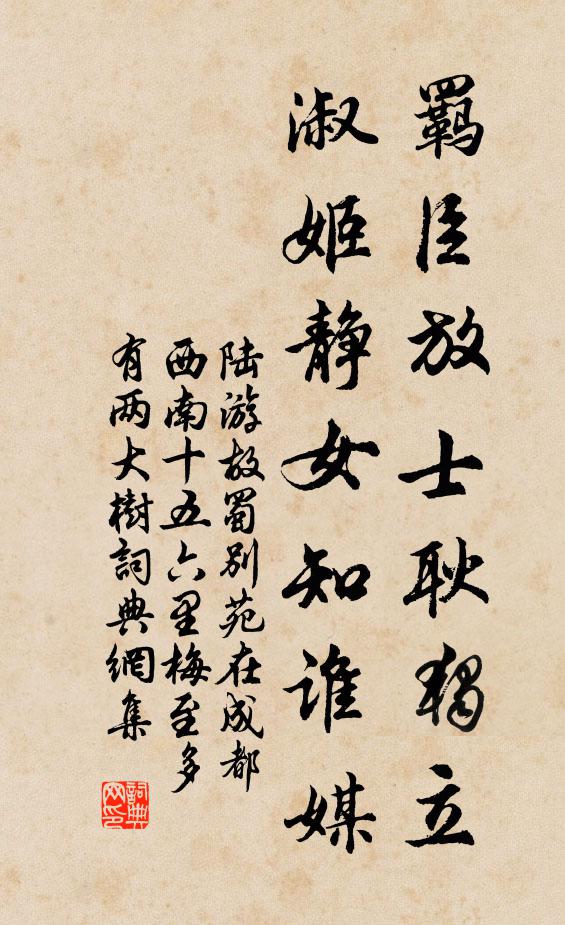 羁臣放士耿獨立
淑姬静女知谁媒
陆游故蜀别苑在成都
西南十五六里梅至多
有两大樹詞典網集
詞典
网印